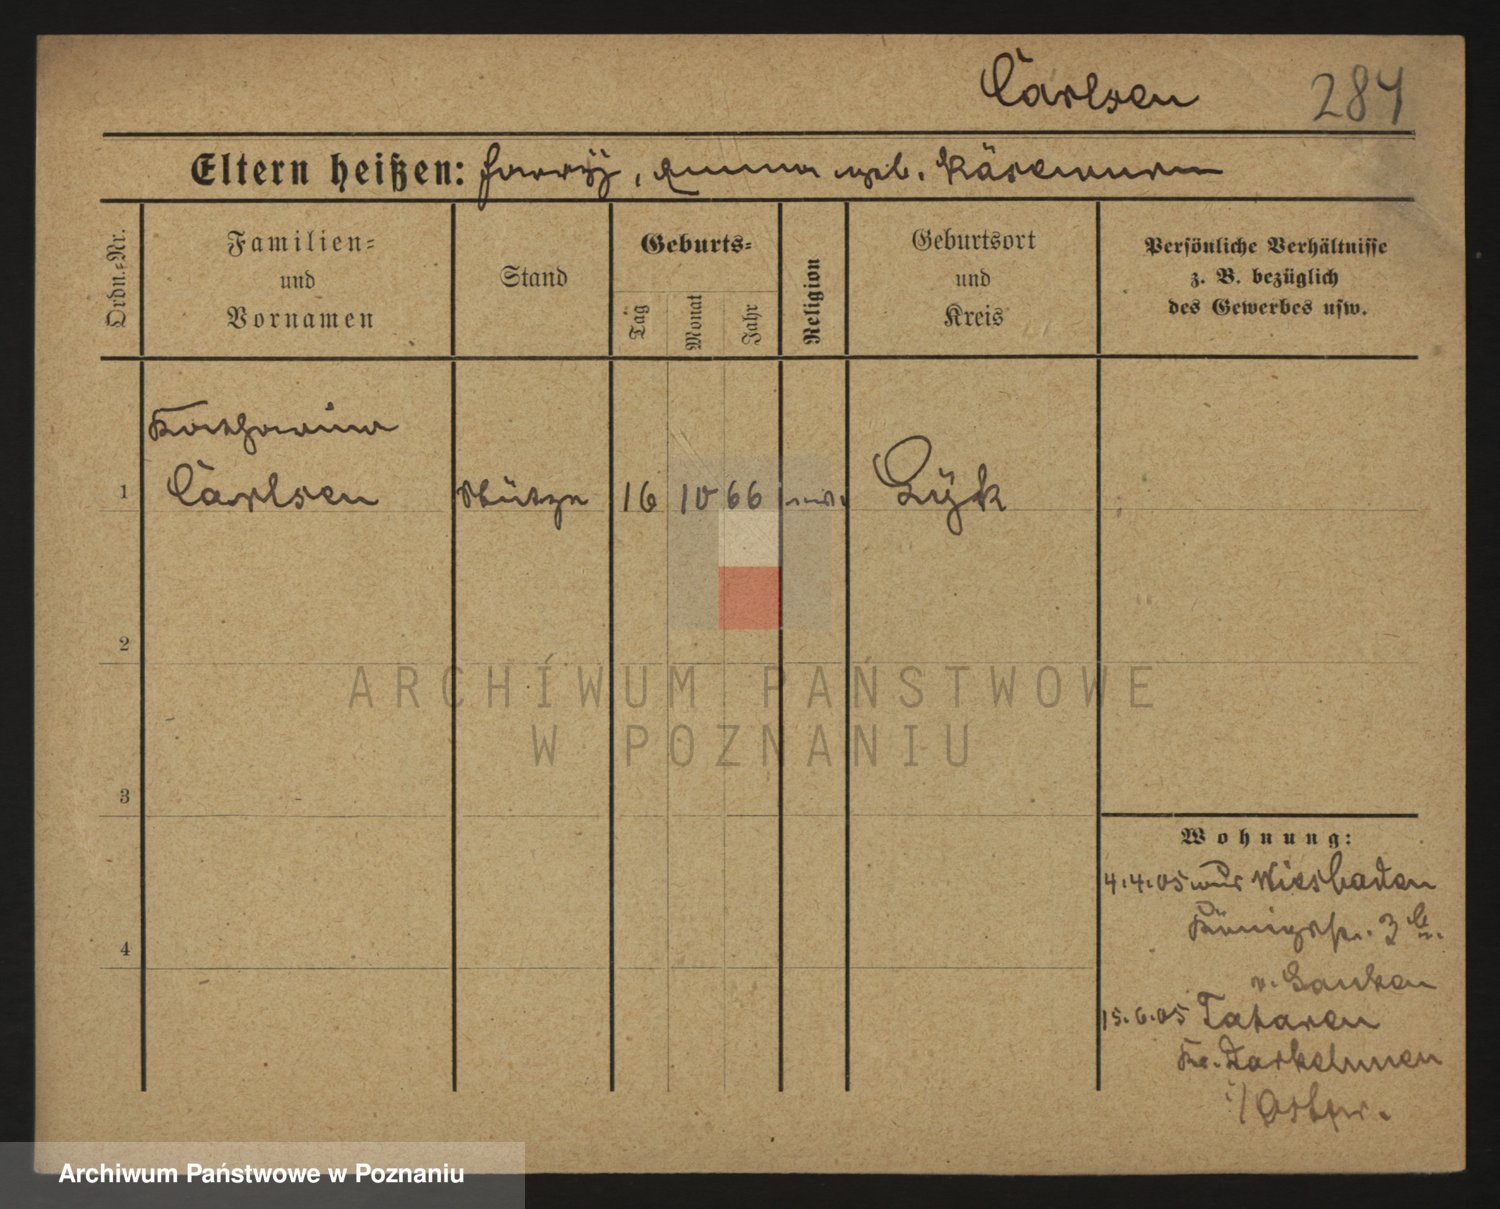 Carlsen 284
Eltern heißen: Harry, Emma geb. Käswurm
Ordn.-Nr.
Familien-
und
Vornamen
Stand
Geburts-
Tag
Monat
Jahr
Religion
Geburtsort
und
Kreis
Persönliche Verhältnisse
z. B. bezüglich
des Gewerbes usw.
Katharina
1 Carlsen Stütze 16 10 66 Lyk
2
3
4
Wohnung:
4.4.05 Wiesbaden
v. Saucken
15.6.05 Tataren
Kr. Darkehmen
i/ Ostpr.
ARCHIWUM PAŃSTWOWE
W POZNANIU
Archiwum Państwowe w Poznaniu